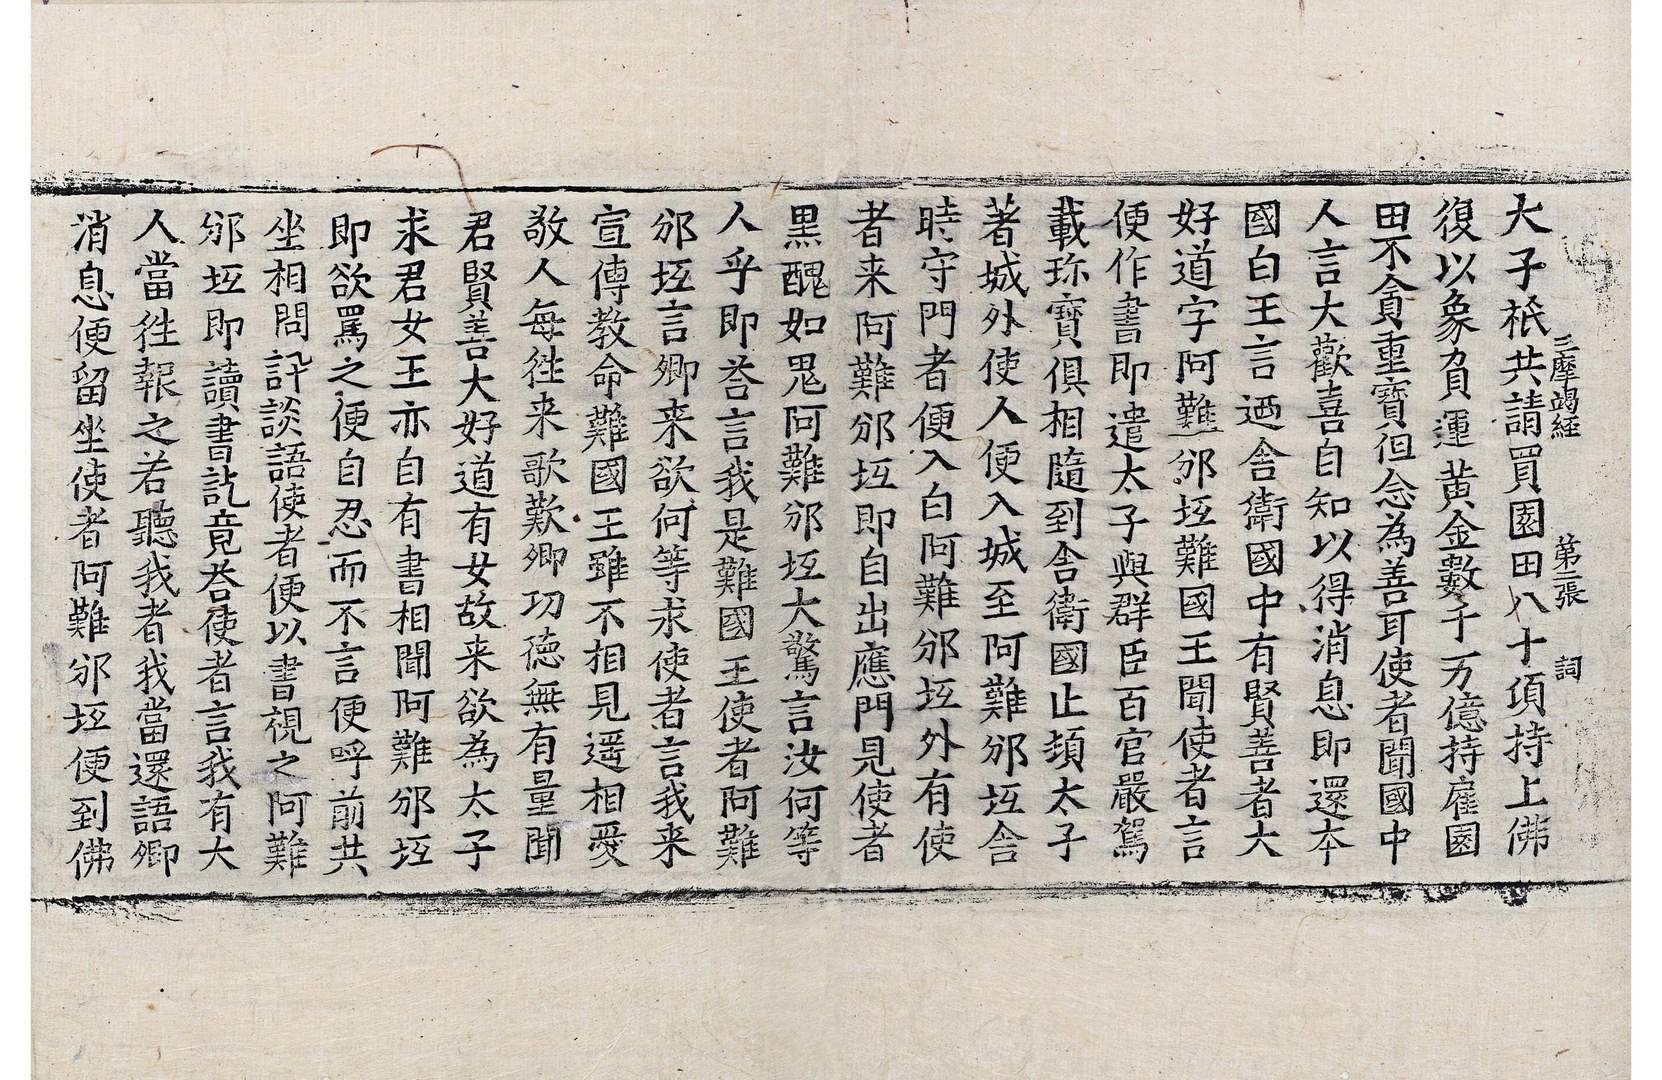 三摩竭經　第二張　詞
大子祇共請買園田八十頃持上佛
復以象負運黃金數千万億持雇園
田不貪重寶但念為善耳使者聞國中
人言大歡喜自知以得消息即還本
國白王言迺舍衛國中有賢善者大
好道字阿難邠坻難國王聞使者言
便作書即遣太子與群臣百官嚴駕
載珎寶俱相隨到舍衛國止頓太子
著城外使人便入城至阿難邠坻舍
時守門者便入白阿難邠坻外有使
者来阿難邠坻即自出應門見使者
黒醜如鬼阿難邠坻大驚言汝何等
人乎即荅言我是難國王使者阿難
邠坻言卿来欲何等求使者言我来
宣傳教命難國王雖不相見遥相愛
敬人每徃来歌歎卿功徳無有量聞
君賢善大好道有女故来欲為太子
求君女王亦自有書相聞阿難邠坻
即欲罵之便自忍而不言便呼前共
坐相問訊談語使者便以書視之阿難
邠坻即讀書訖竟荅使者言我有大
人當徃報之若聽我者我當還語卿
消息便留坐使者阿難邠坻便到佛